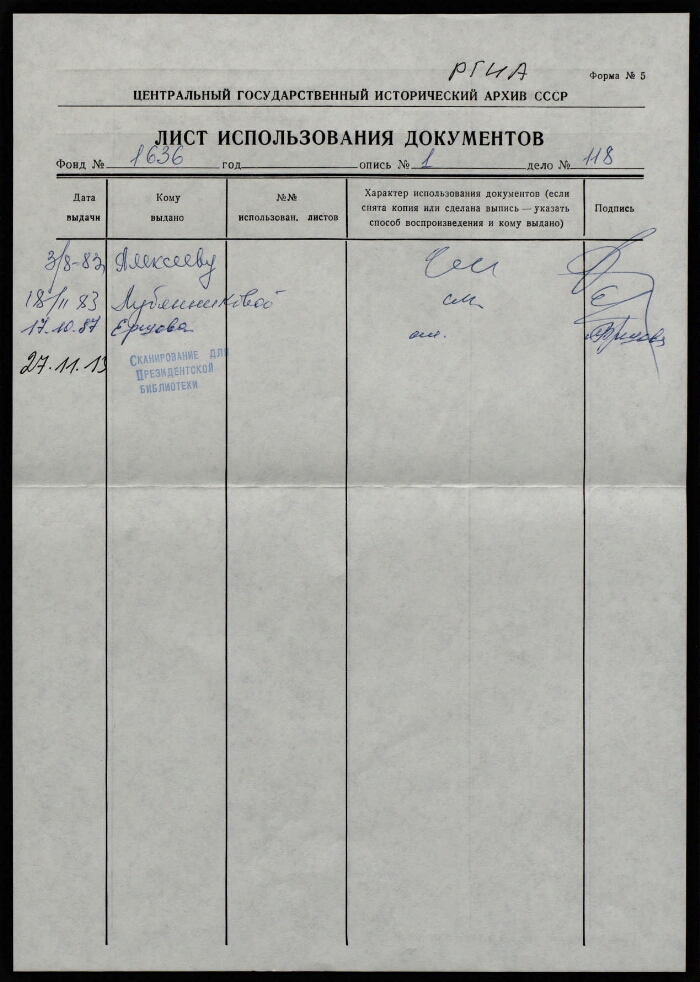 РГИА
Форма № 5
ЦЕНТРАЛЬНЫЙ ГОСУДАРСТВЕННЫЙ ИСТОРИЧЕСКИЙ АРХИВ СССР
ЛИСТ ИСПОЛЬЗОВАНИЯ ДОКУМЕНТОВ
Фонд № 1636 год опись № 1 дело № 118
Дата выдачи
Кому выдано
№№ использован. листов
Характер использования документов (если
снята копия или сделана выпись — указать
способ воспроизведения и кому выдано)
Подпись
3/8-83 Алексееву
18/II 83 Лубянниковой см.
17.10.87
27.11.13 Сканирование для
Президентской
библиотеки